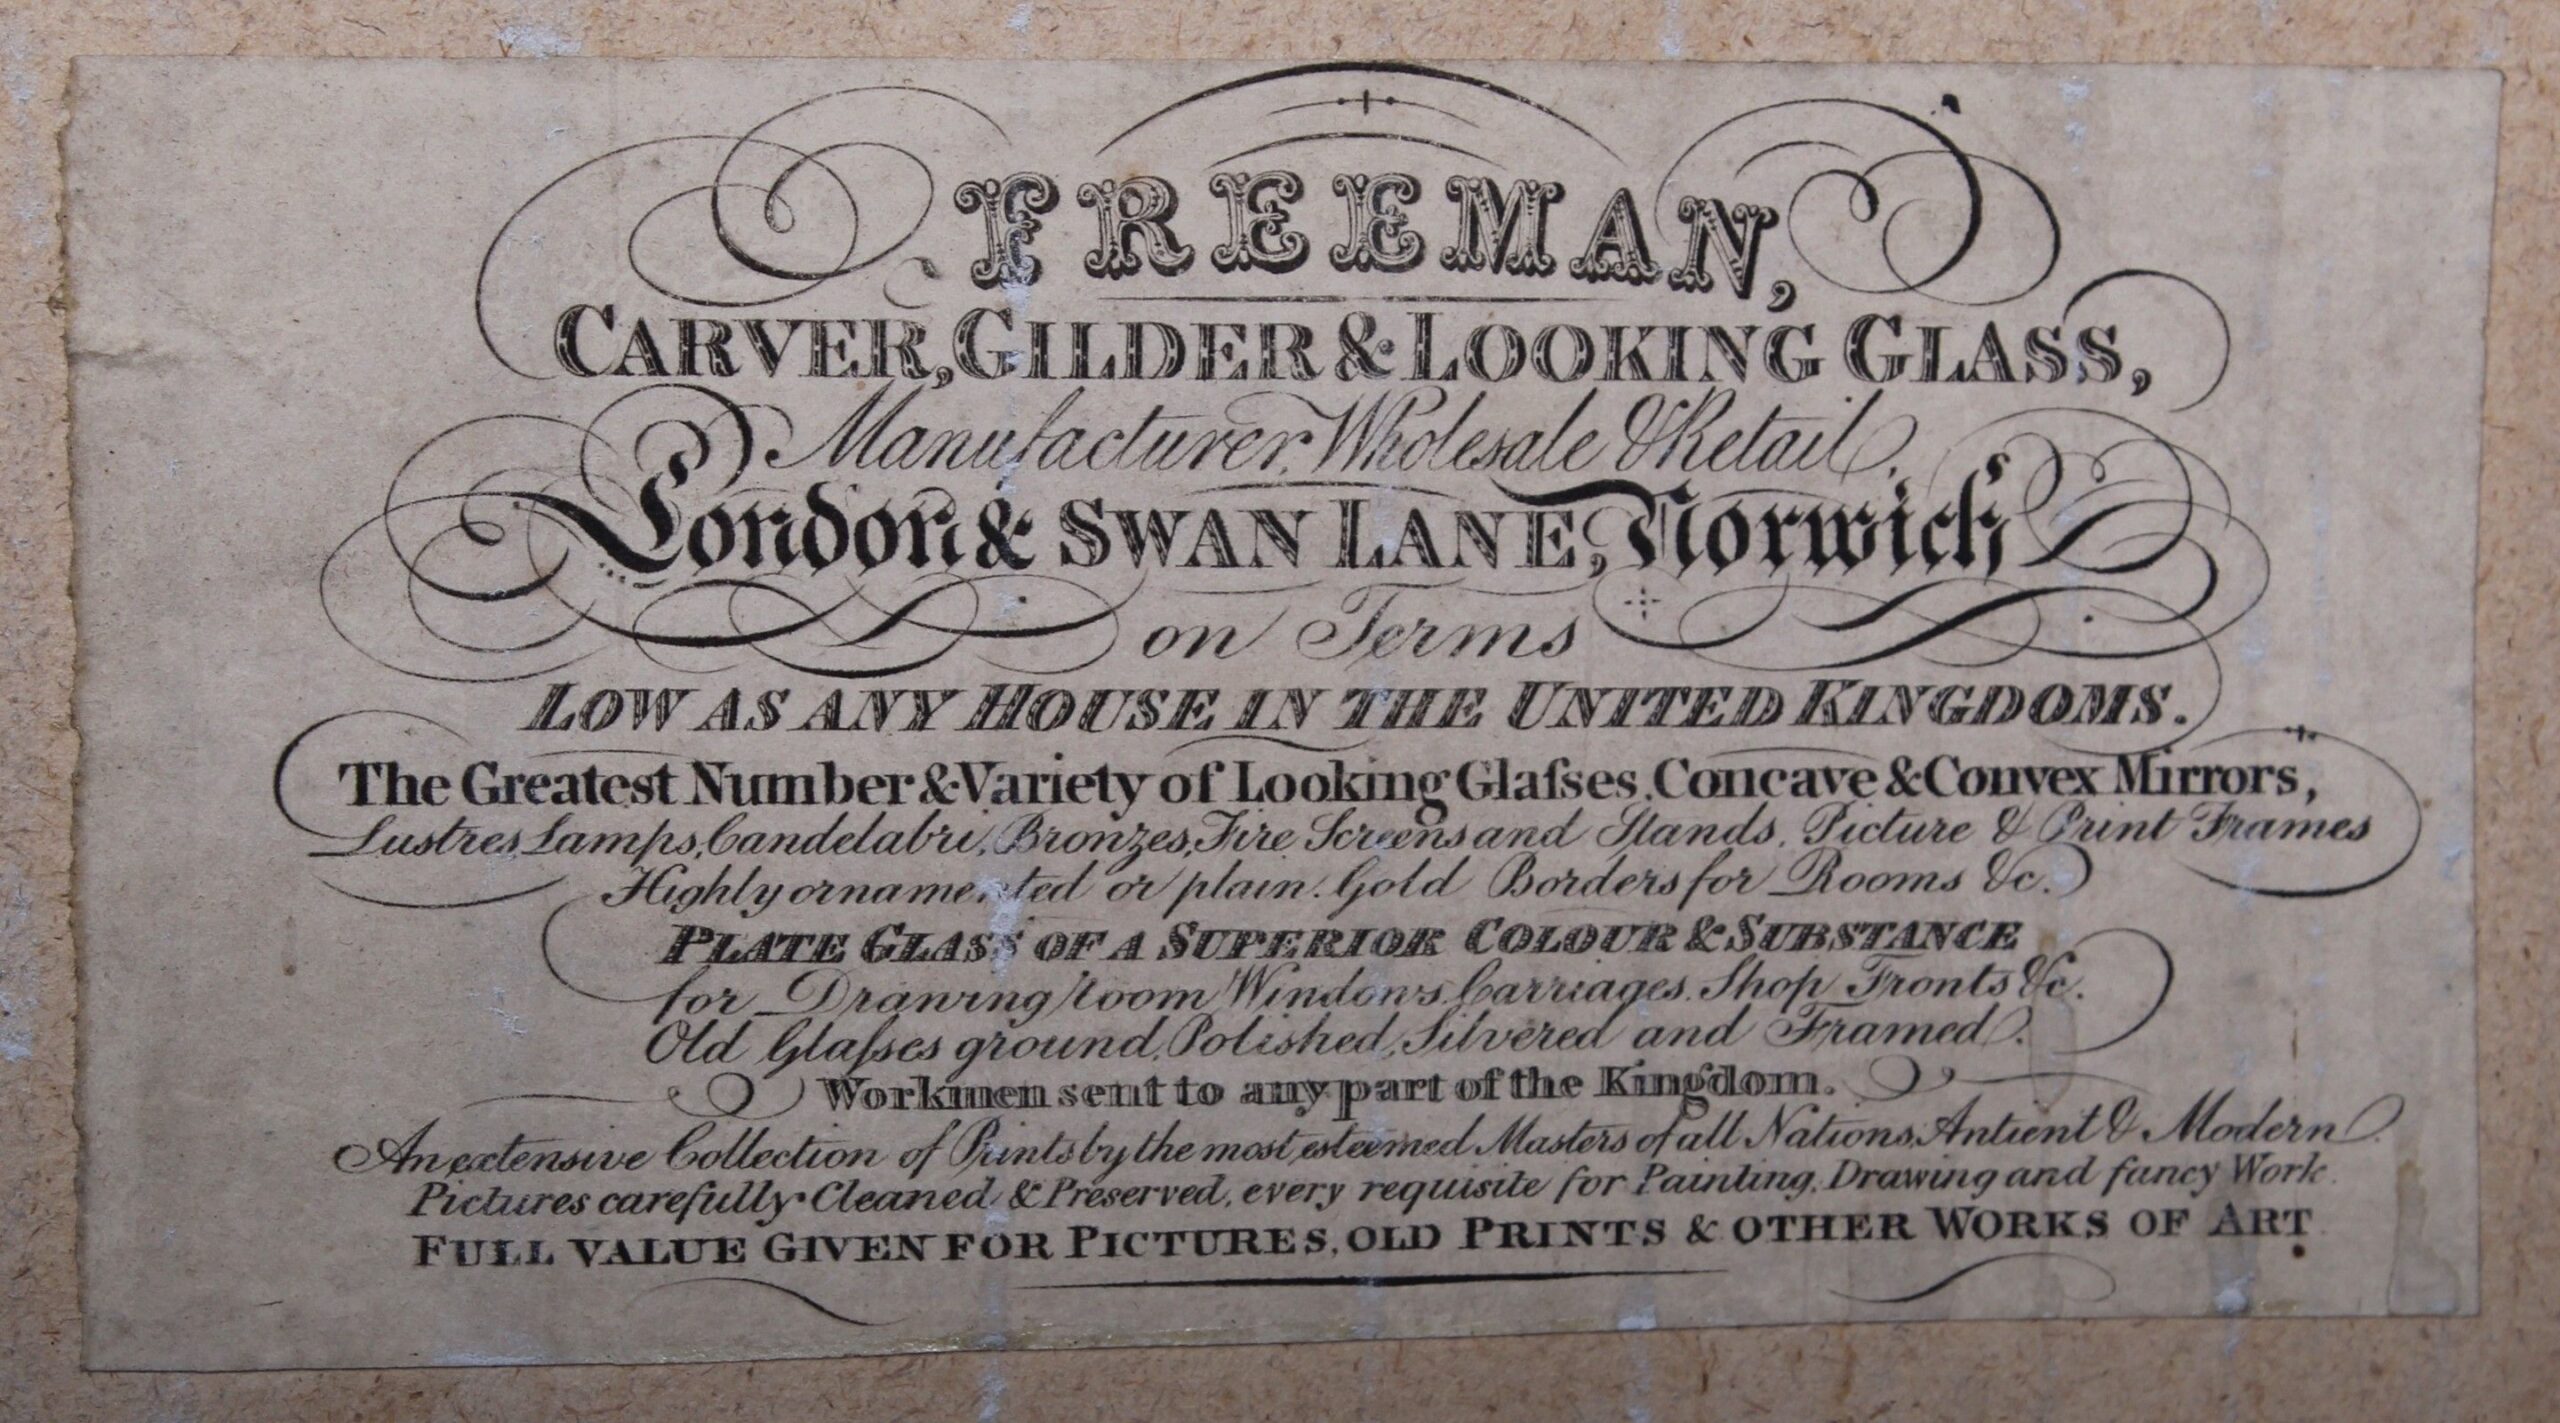 FREEMAN,
CARVER, GILDER & LOOKING GLASS,
Manufacturer, Wholesale & Retail,
London & SWAN LANE, Norwich
on Terms
LOW AS ANY HOUSE IN THE UNITED KINGDOMS.
The Greatest Number & Variety of Looking Glaſses, Concave & Convex Mirrors,
Lustres, Lamps, Candelabri, Bronzes, Fire Screens and Stands, Picture & Print Frames
Highly ornamented or plain. Gold Borders for Rooms &c.
PLATE GLASS OF A SUPERIOR COLOUR & SUBSTANCE
for Drawing room Windows, Carriages, Shop Fronts &c.
Old Glaſses ground, Polished, Silvered and Framed.
Workmen sent to any part of the Kingdom.
An extensive Collection of Prints by the most esteemed Masters of all Nations, Antient & Modern
Pictures carefully Cleaned & Preserved, every requisite for Painting, Drawing and fancy Work.
FULL VALUE GIVEN FOR PICTURES, OLD PRINTS & OTHER WORKS OF ART